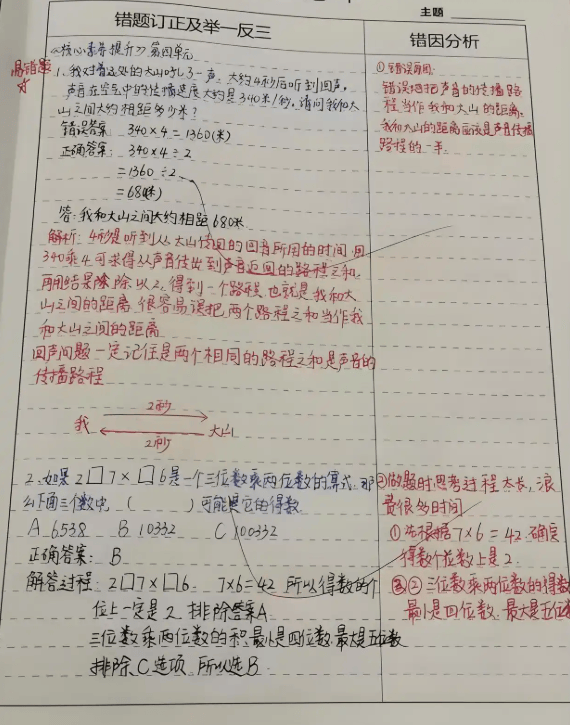 主题
错题订正及举一反三
错因分析
《核心素养提升》第四单元
易错题
1、我对着远处的大山吼了一声，大约4秒后听到回声，
声音在空气中的传播速度大约是340米/秒，请问我和大
山之间大约相距多少米？
错误答案 340×4=1360(米)
正确答案： 340×4÷2
=1360÷2
=680(米)
答：我和大山之间大约相距680米
解析：4秒是听到从大山传回的回音所用的时间,用
340乘4可求得从声音传出到声音返回的路程之和,
再用结果除以2,得到一个路程,也就是我和大
山之间的距离,很容易误把两个路程之和当作我
和大山之间的距离
回声问题一定记住是两个相同的路程之和是声音的
传播路程
2秒
我
大山
2秒
①错误原因:
错误地把声音的传播路
程当作我和大山的距离,
我和大山的距离应该是声音传播
路程的一半.
2、如果2□7×□6是一个三位数乘两位数的算式,那
么下面三个数中,( )可能是它的得数
A 6538 B 10332 C 100332
正确答案: B
解答过程: 2□7×□6. 7×6=42 所以得数的个
位上一定是2 排除答案A
三位数乘两位数的积最小是四位数.最大是五位数
排除C选项,所以选B
②做题时思考过程太长,浪
费很多时间
①先根据7×6=42.确定
得数个位数上是2
②三位数乘两位数的得数
最小是四位数.最大是五位数